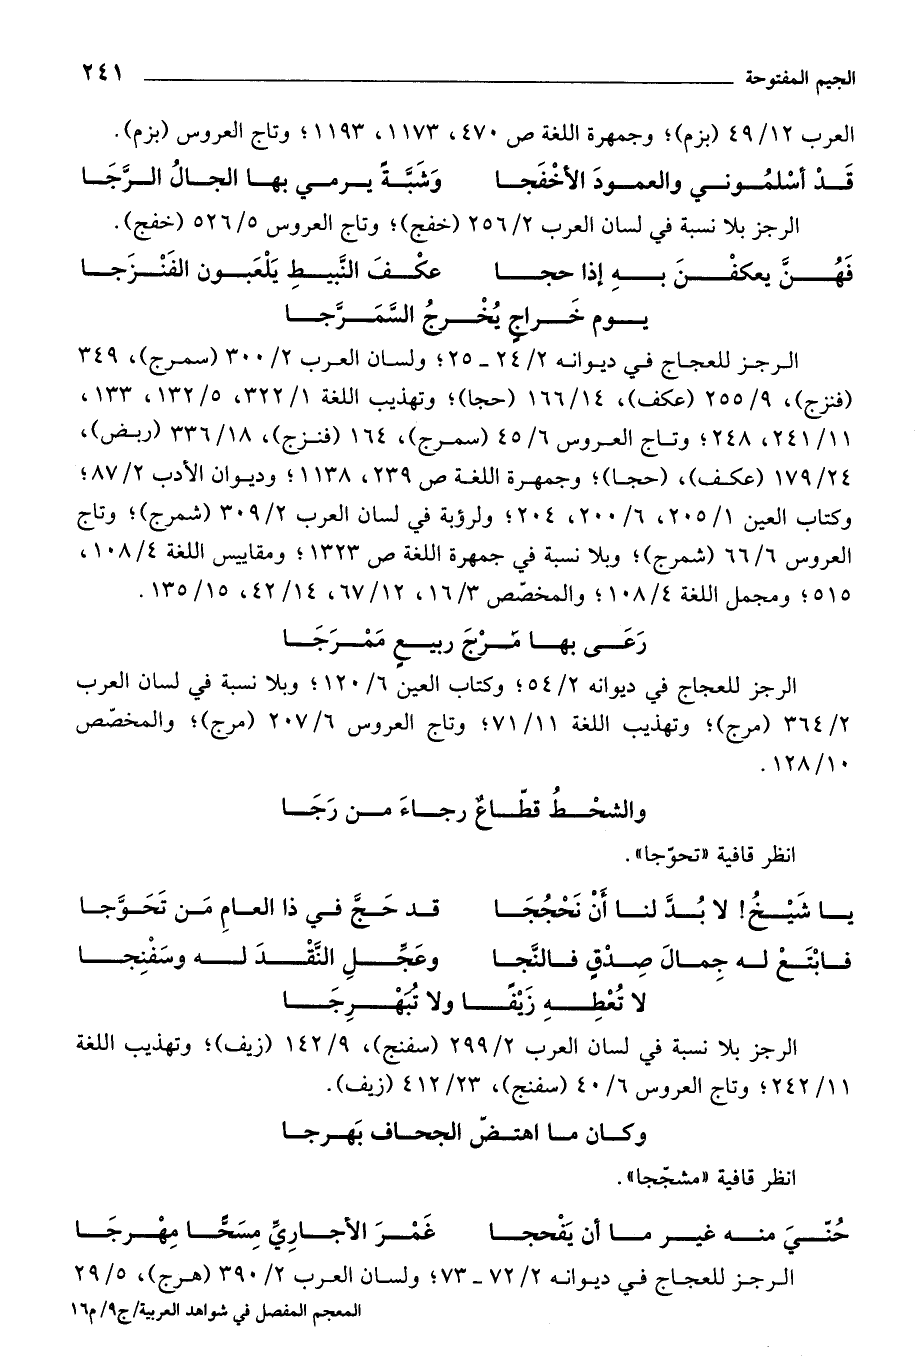 الجيم المفتوحة ٢٤١
العرب ١٢/ ٤٩ (بزم)؛ وجمهرة اللغة ص ٤٧٠، ١١٧٣، ١١٩٣؛ وتاج العروس (بزم).
قَدْ أسْلمُوني والعمودَ الأخْفَجا وَشَبَّةً يرمي بها الجالُ الرَّجَا
الرجز بلا نسبة في لسان العرب ٢/ ٢٥٦ (خفج)؛ وتاج العروس ٥/ ٥٢٦ (خفج).
فَهُنَّ يعكفْنَ بهِ إذا حجا عكْفَ النَّبيطِ يَلْعَبون الفَنْزَجا
يوم خَراجٍ يُخْرِجُ السَّمَرَّجا
الرجز للعجاج في ديوانه ٢/ ٢٤ ـ ٢٥؛ ولسان العرب ٢/ ٣٠٠ (سمرج)، ٣٤٩
(فنزج)، ٩/ ٢٥٥ (عكف)، ١٤/ ١٦٦ (حجا)؛ وتهذيب اللغة ١/ ٣٢٢، ٥/ ١٣٢، ١٣٣،
١١/ ٢٤١، ٢٤٨؛ وتاج العروس ٦/ ٤٥ (سمرج)، ١٦٤ (فنزج)، ١٨/ ٣٣٦ (ربض)،
٢٤/ ١٧٩ (عكف)، (حجا)؛ وجمهرة اللغة ص ٢٣٩، ١١٣٨؛ وديوان الأدب ٢/ ٨٧؛
وكتاب العين ١/ ٢٠٥، ٦/ ٢٠٠، ٢٠٤؛ ولرؤبة في لسان العرب ٢/ ٣٠٩ (شمرج)؛ وتاج
العروس ٦/ ٦٦ (شمرج)؛ وبلا نسبة في جمهرة اللغة ص ١٣٢٣؛ ومقاييس اللغة ٤/ ١٠٨،
٥١٥؛ ومجمل اللغة ٤/ ١٠٨؛ والمخصّص ٣/ ١٦، ١٢/ ٦٧، ١٤/ ٤٢، ١٥/ ١٣٥.
رَعَى بها مَرْجَ ربيعٍ مَمْرَجَا
الرجز للعجاج في ديوانه ٢/ ٥٤؛ وكتاب العين ٦/ ١٢٠؛ وبلا نسبة في لسان العرب
٢/ ٣٦٤ (مرج)؛ وتهذيب اللغة ١١/ ٧١؛ وتاج العروس ٦/ ٢٠٧ (مرج)؛ والمخصّص
١٠/ ١٢٨.
والشحْطُ قطّاعٌ رجاءَ من رَجَا
انظر قافية «تحوّجا».
يا شَيْخُ! لا بُدَّ لنا أَنْ نَحْجُجَا قد حَجَّ في ذا العامِ مَن تَحَوَّجا
فابْتَغْ له جِمالَ صِدْقٍ فالنَّجا وعَجِّلِ النَّقْدَ له وسَفْنِجا
لا تُعْطِهِ زَيْفًا ولا تُبَهْرِجَا
الرجز بلا نسبة في لسان العرب ٢/ ٢٩٩ (سفنج)، ٩/ ١٤٢ (زيف)؛ وتهذيب اللغة
١١/ ٢٤٢؛ وتاج العروس ٦/ ٤٠ (سفنج)، ٢٣/ ٤١٢ (زيف).
وكان ما اهتضّ الجحاف بَهرجا
انظر قافية «مشجّجا».
حُنِّيَ منه غير ما أن يَفْحجا غَمْرَ الأجاريِّ مِسَحًّا مِهْرجَا
الرجز للعجاج في ديوانه ٢/ ٧٢ ـ ٧٣؛ ولسان العرب ٢/ ٣٩٠ (هرج)، ٥/ ٢٩
المعجم المفصل في شواهد العربية/ ج٩/ م١٦